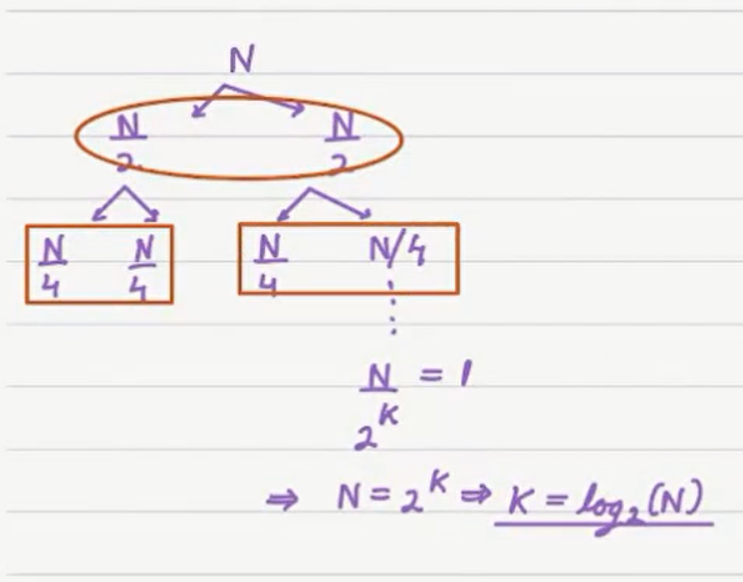 N
N/2 N/2
N/4 N/4 N/4 N/4
N/2^K = 1
⇒ N = 2^K ⇒ K = log₂(N)